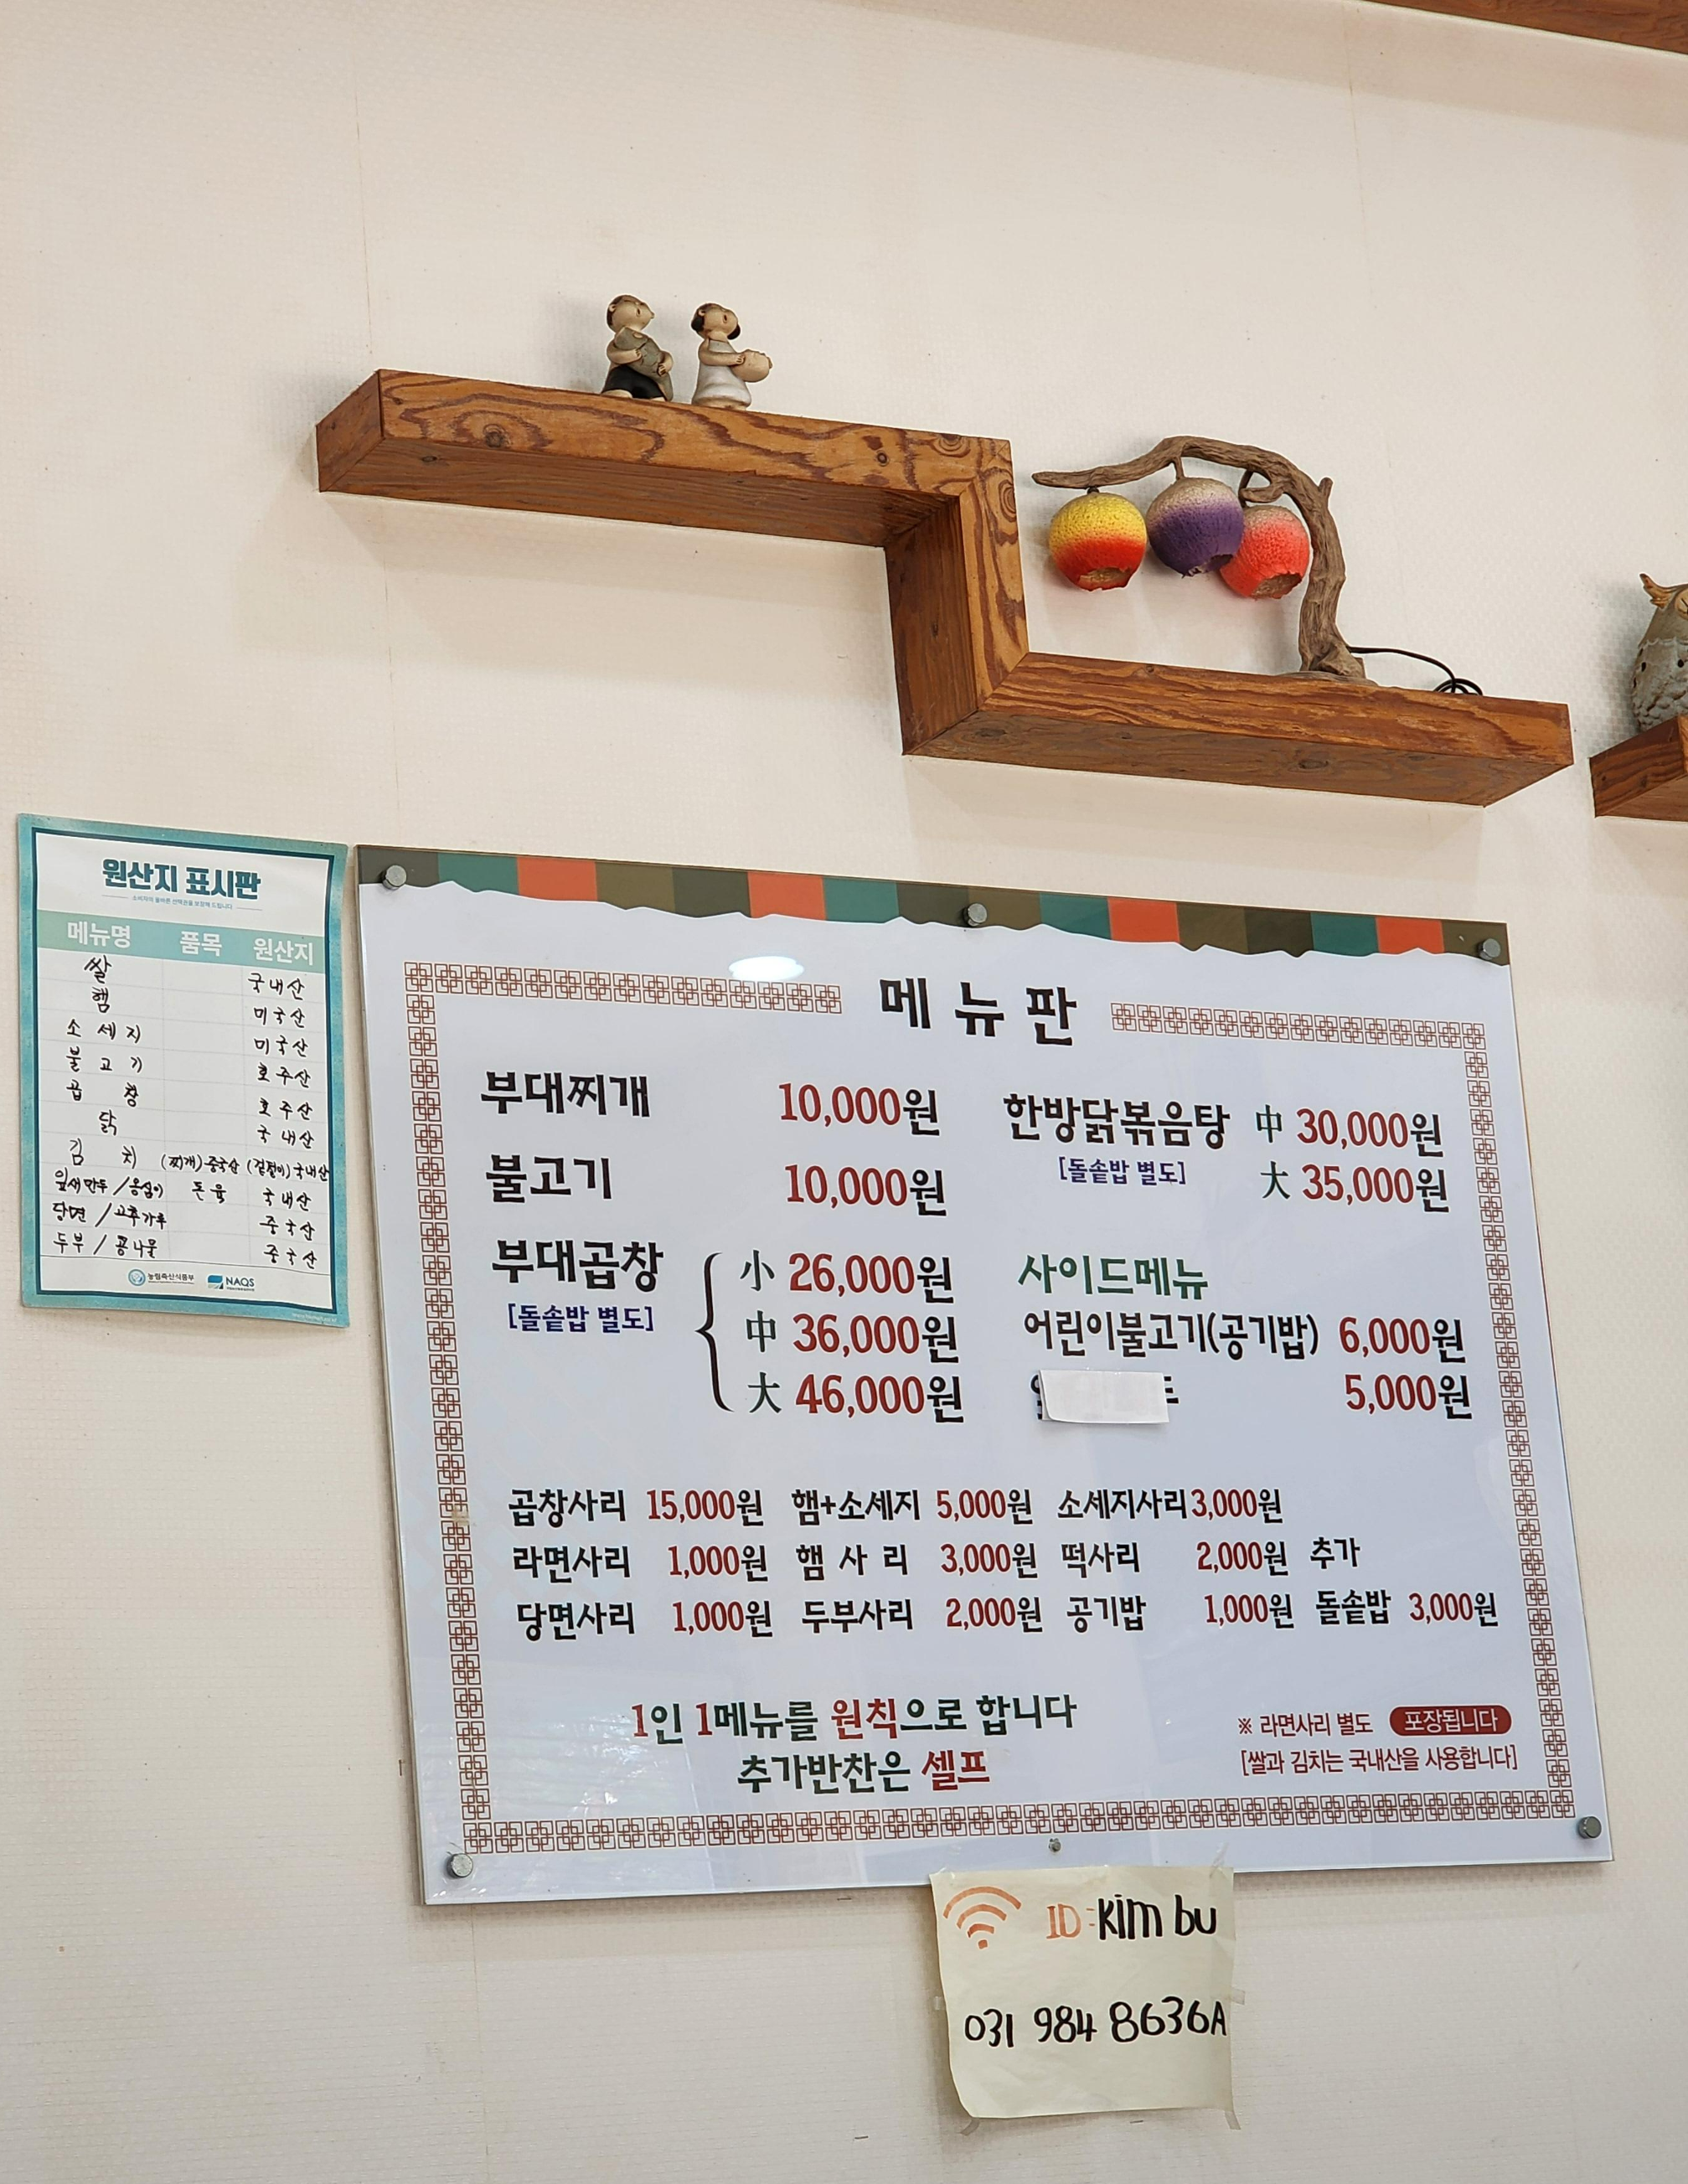 원산지 표시판
소비자의 올바른 선택권을 보장해 드립니다
메뉴명 품목 원산지
쌀 국내산
햄 미국산
소세지 미국산
불고기 호주산
곱창 호주산
닭 국내산
김치 (찌개)중국산 (겉절이)국내산
잎새만두/옹심이 돈육 국내산
당면/고추가루 중국산
두부/콩나물 중국산
농림축산식품부 NAQS
메뉴판
부대찌개 10,000원
불고기 10,000원
부대곱창 小 26,000원
[돌솥밥 별도] 中 36,000원
大 46,000원
한방닭볶음탕 中 30,000원
[돌솥밥 별도] 大 35,000원
사이드메뉴
어린이불고기(공기밥) 6,000원
5,000원
곱창사리 15,000원 햄+소세지 5,000원 소세지사리 3,000원
라면사리 1,000원 햄사리 3,000원 떡사리 2,000원 추가
당면사리 1,000원 두부사리 2,000원 공기밥 1,000원 돌솥밥 3,000원
1인 1메뉴를 원칙으로 합니다
추가반찬은 셀프
※ 라면사리 별도 포장됩니다
[쌀과 김치는 국내산을 사용합니다]
ID:kim bu
031 984 8636A